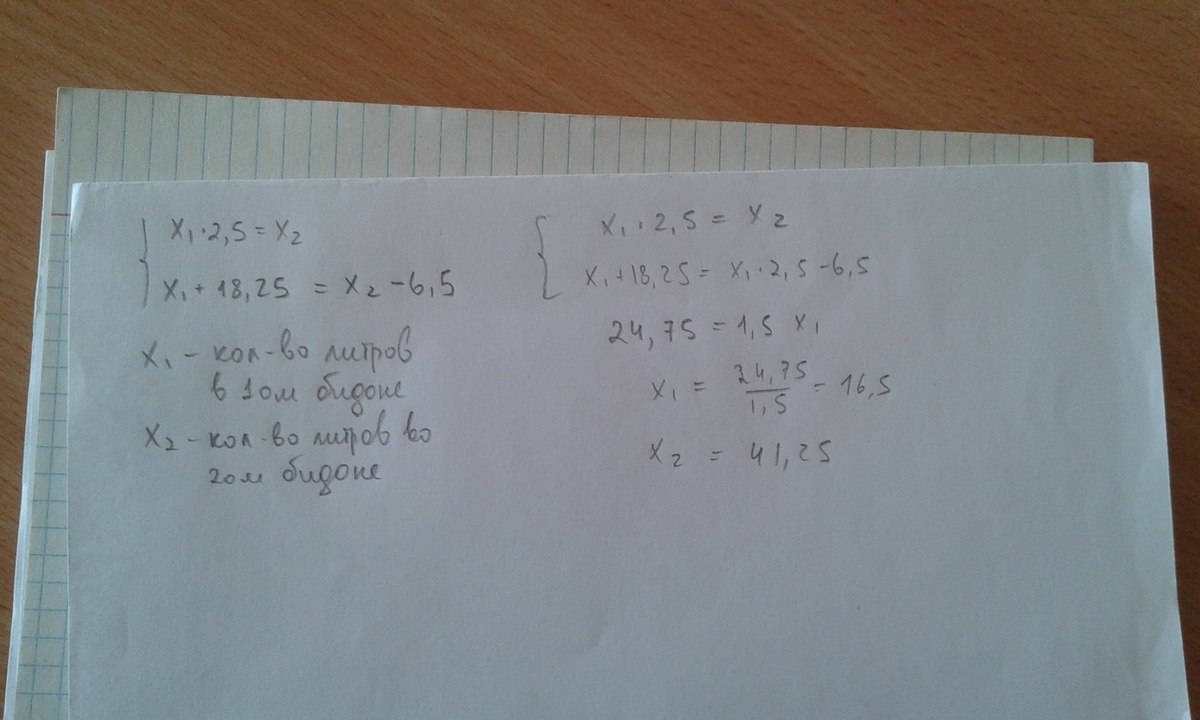 x₁·2,5=x₂
x₁+18,25 = x₂-6,5
x₁ - кол-во литров
в 1ом бидоне
x₂ - кол-во литров во
2ом бидоне
x₁·2,5 = x₂
x₁+18,25 = x₁·2,5-6,5
24,75 = 1,5 x₁
x₁ = 24,75/1,5 = 16,5
x₂ = 41,25